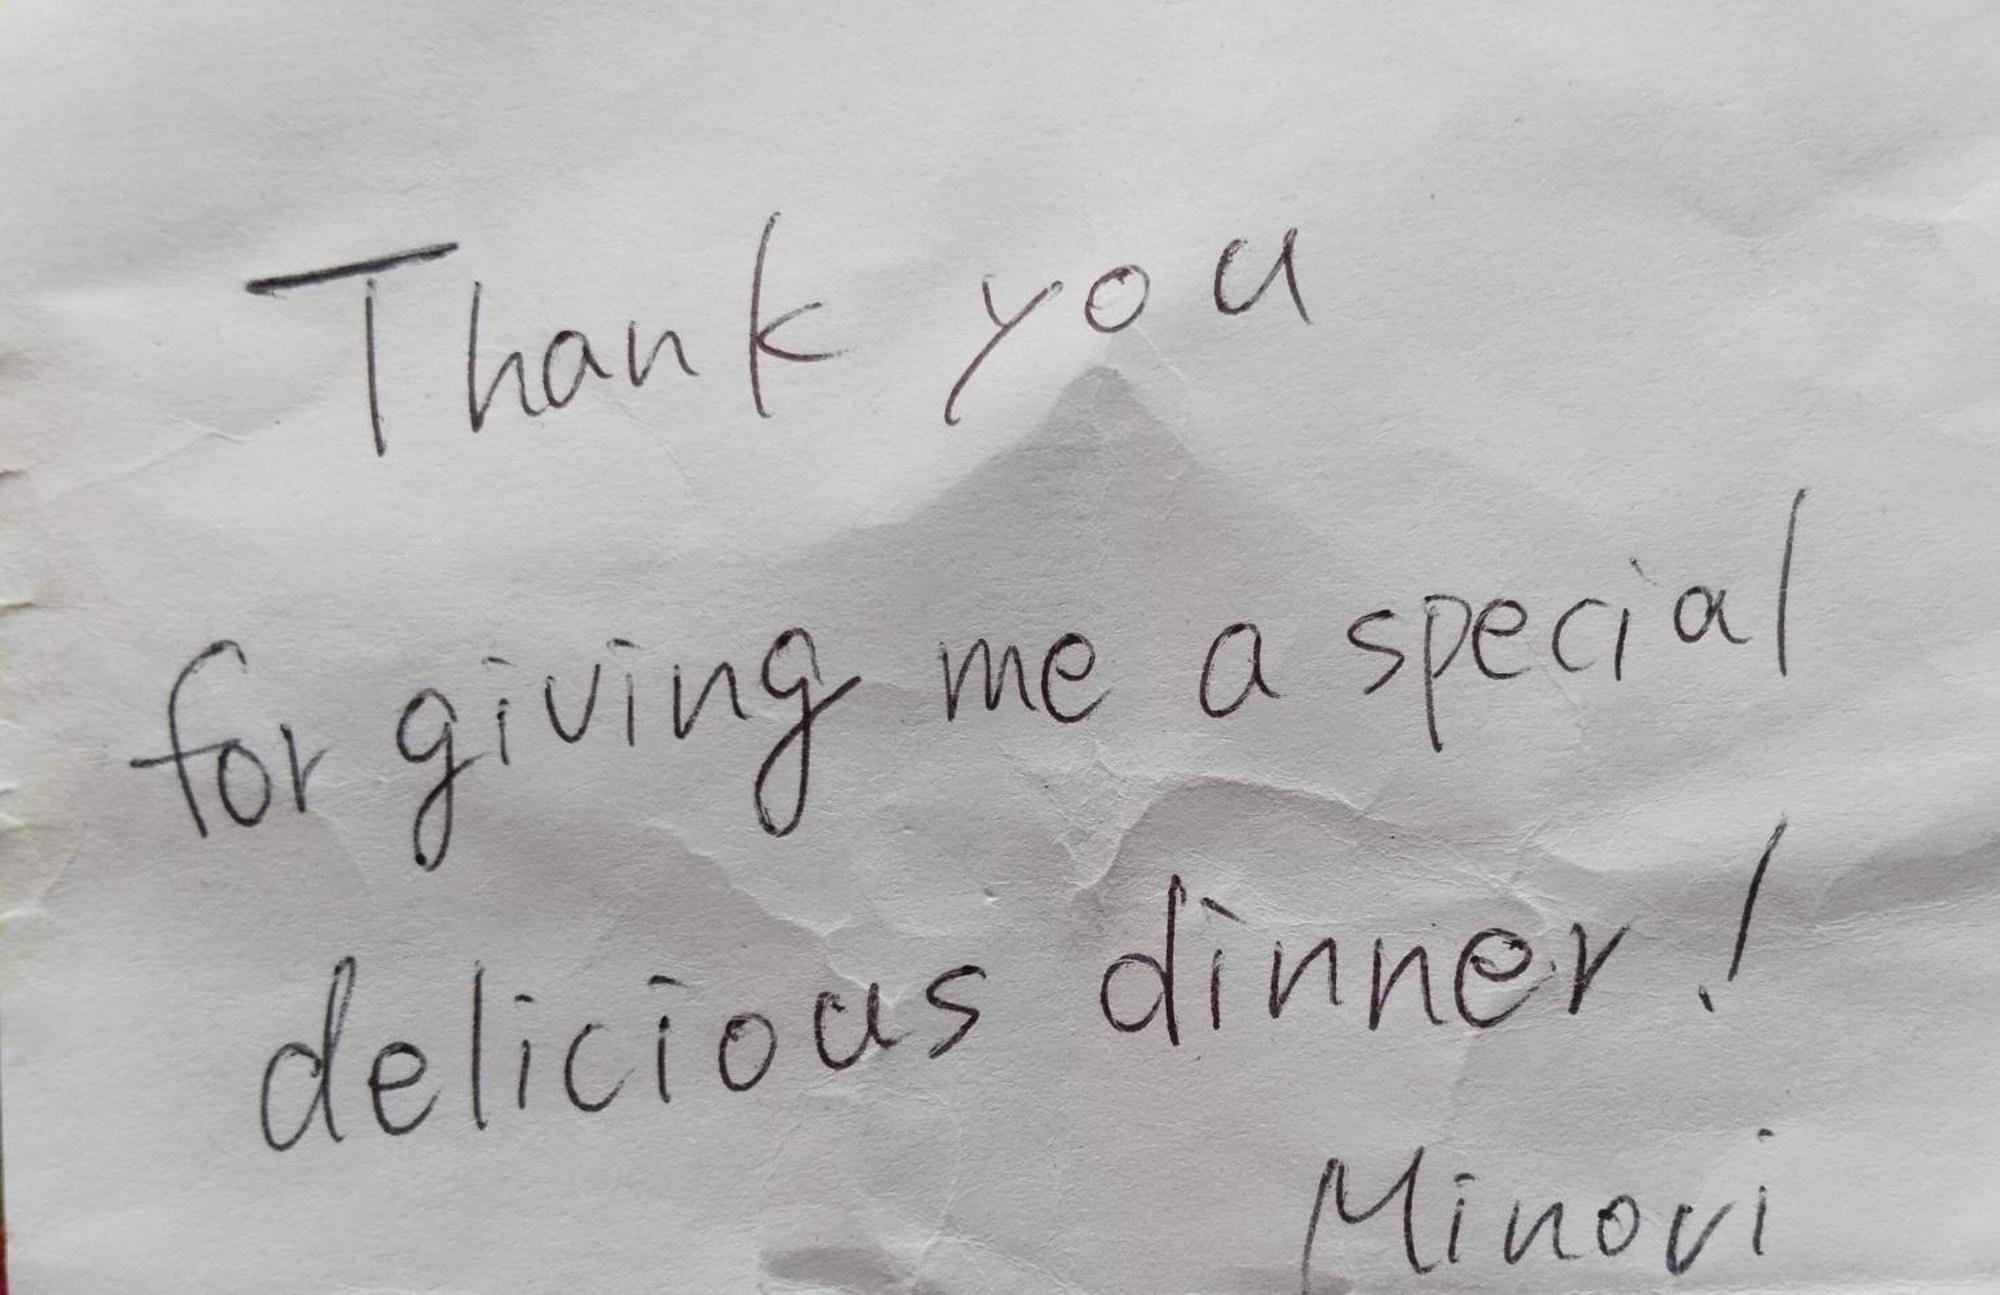 Thank you
for giving me a special
delicious dinner!
Minori